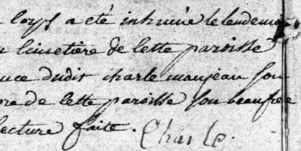 corps a été inhumé le lendemain
cimetière de cette paroisse
dudit charle maujean son
de cette paroisse son beaufrere
lecture faite. Charle